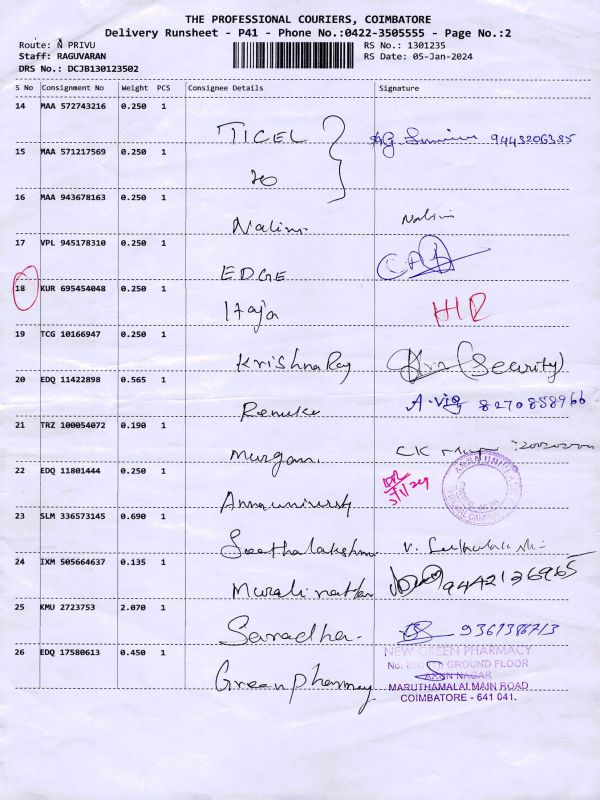 THE PROFESSIONAL COURIERS, COIMBATORE
Delivery Runsheet - P41 - Phone No.:0422-3505555 - Page No.:2
Route: N PRIVU
Staff: RAGUVARAN
DRS No.: DCJB130123502
RS No.: 1301235
RS Date: 05-Jan-2024
S No Consignment No Weight PCS Consignee Details Signature
14 MAA 572743216 0.250 1 TICEL 9443206385
15 MAA 571217569 0.250 1
16 MAA 943678163 0.250 1 Nalini Nalini
17 VPL 945178310 0.250 1 EDGE
18 KUR 695454048 0.250 1 HR
19 TCG 10166947 0.250 1 Krishna Raj (Security)
20 EDQ 11422898 0.565 1 Renuka A. 8270858966
21 TRZ 100054072 0.190 1 Murgan CK
22 EDQ 11801444 0.250 1 Anna university
23 SLM 336573145 0.690 1 Seethalakshmi V.
24 IXM 505664637 0.135 1 Murali nathan 9442136965
25 KMU 2723753 2.070 1 Saradha 9367386713
26 EDQ 17580613 0.450 1 Green pharmacy
NEW GREEN PHARMACY
GROUND FLOOR
NAGAR
MARUTHAMALAI MAIN ROAD
COIMBATORE - 641 041.